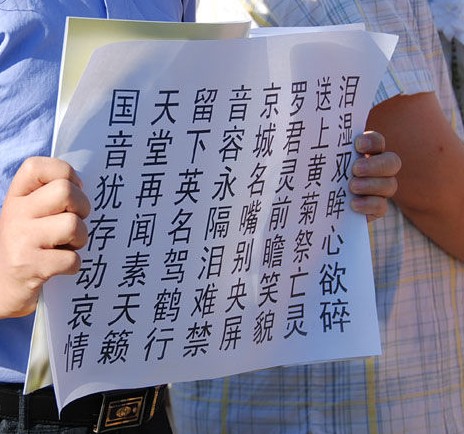 泪湿双眸心欲碎
送上黄菊祭亡灵
罗君灵前瞻笑貌
京城名嘴别央屏
音容永隔泪难禁
留下英名驾鹤行
天堂再闻素天籁
国音犹存动哀情